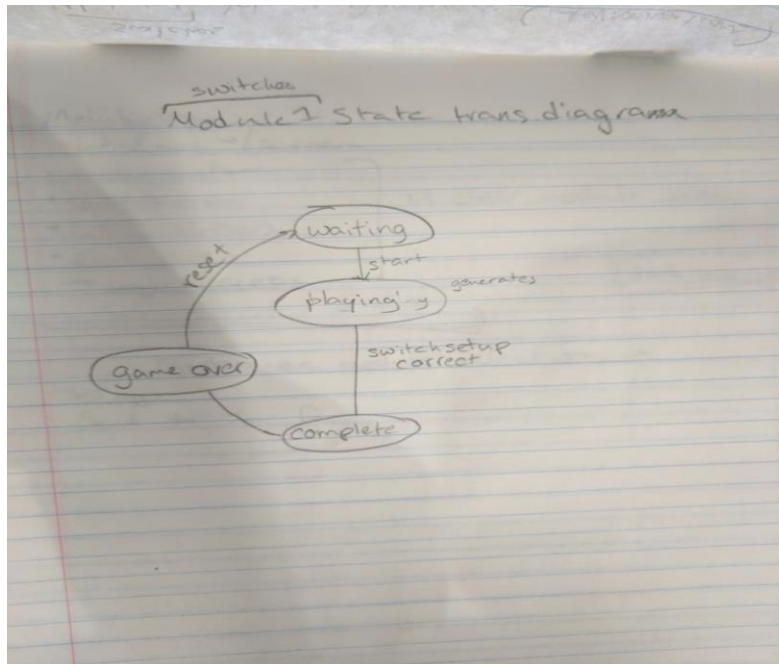 switches
Module 1 State trans diagram
waiting
reset
start
playing
generates
switch setup
correct
game over
complete